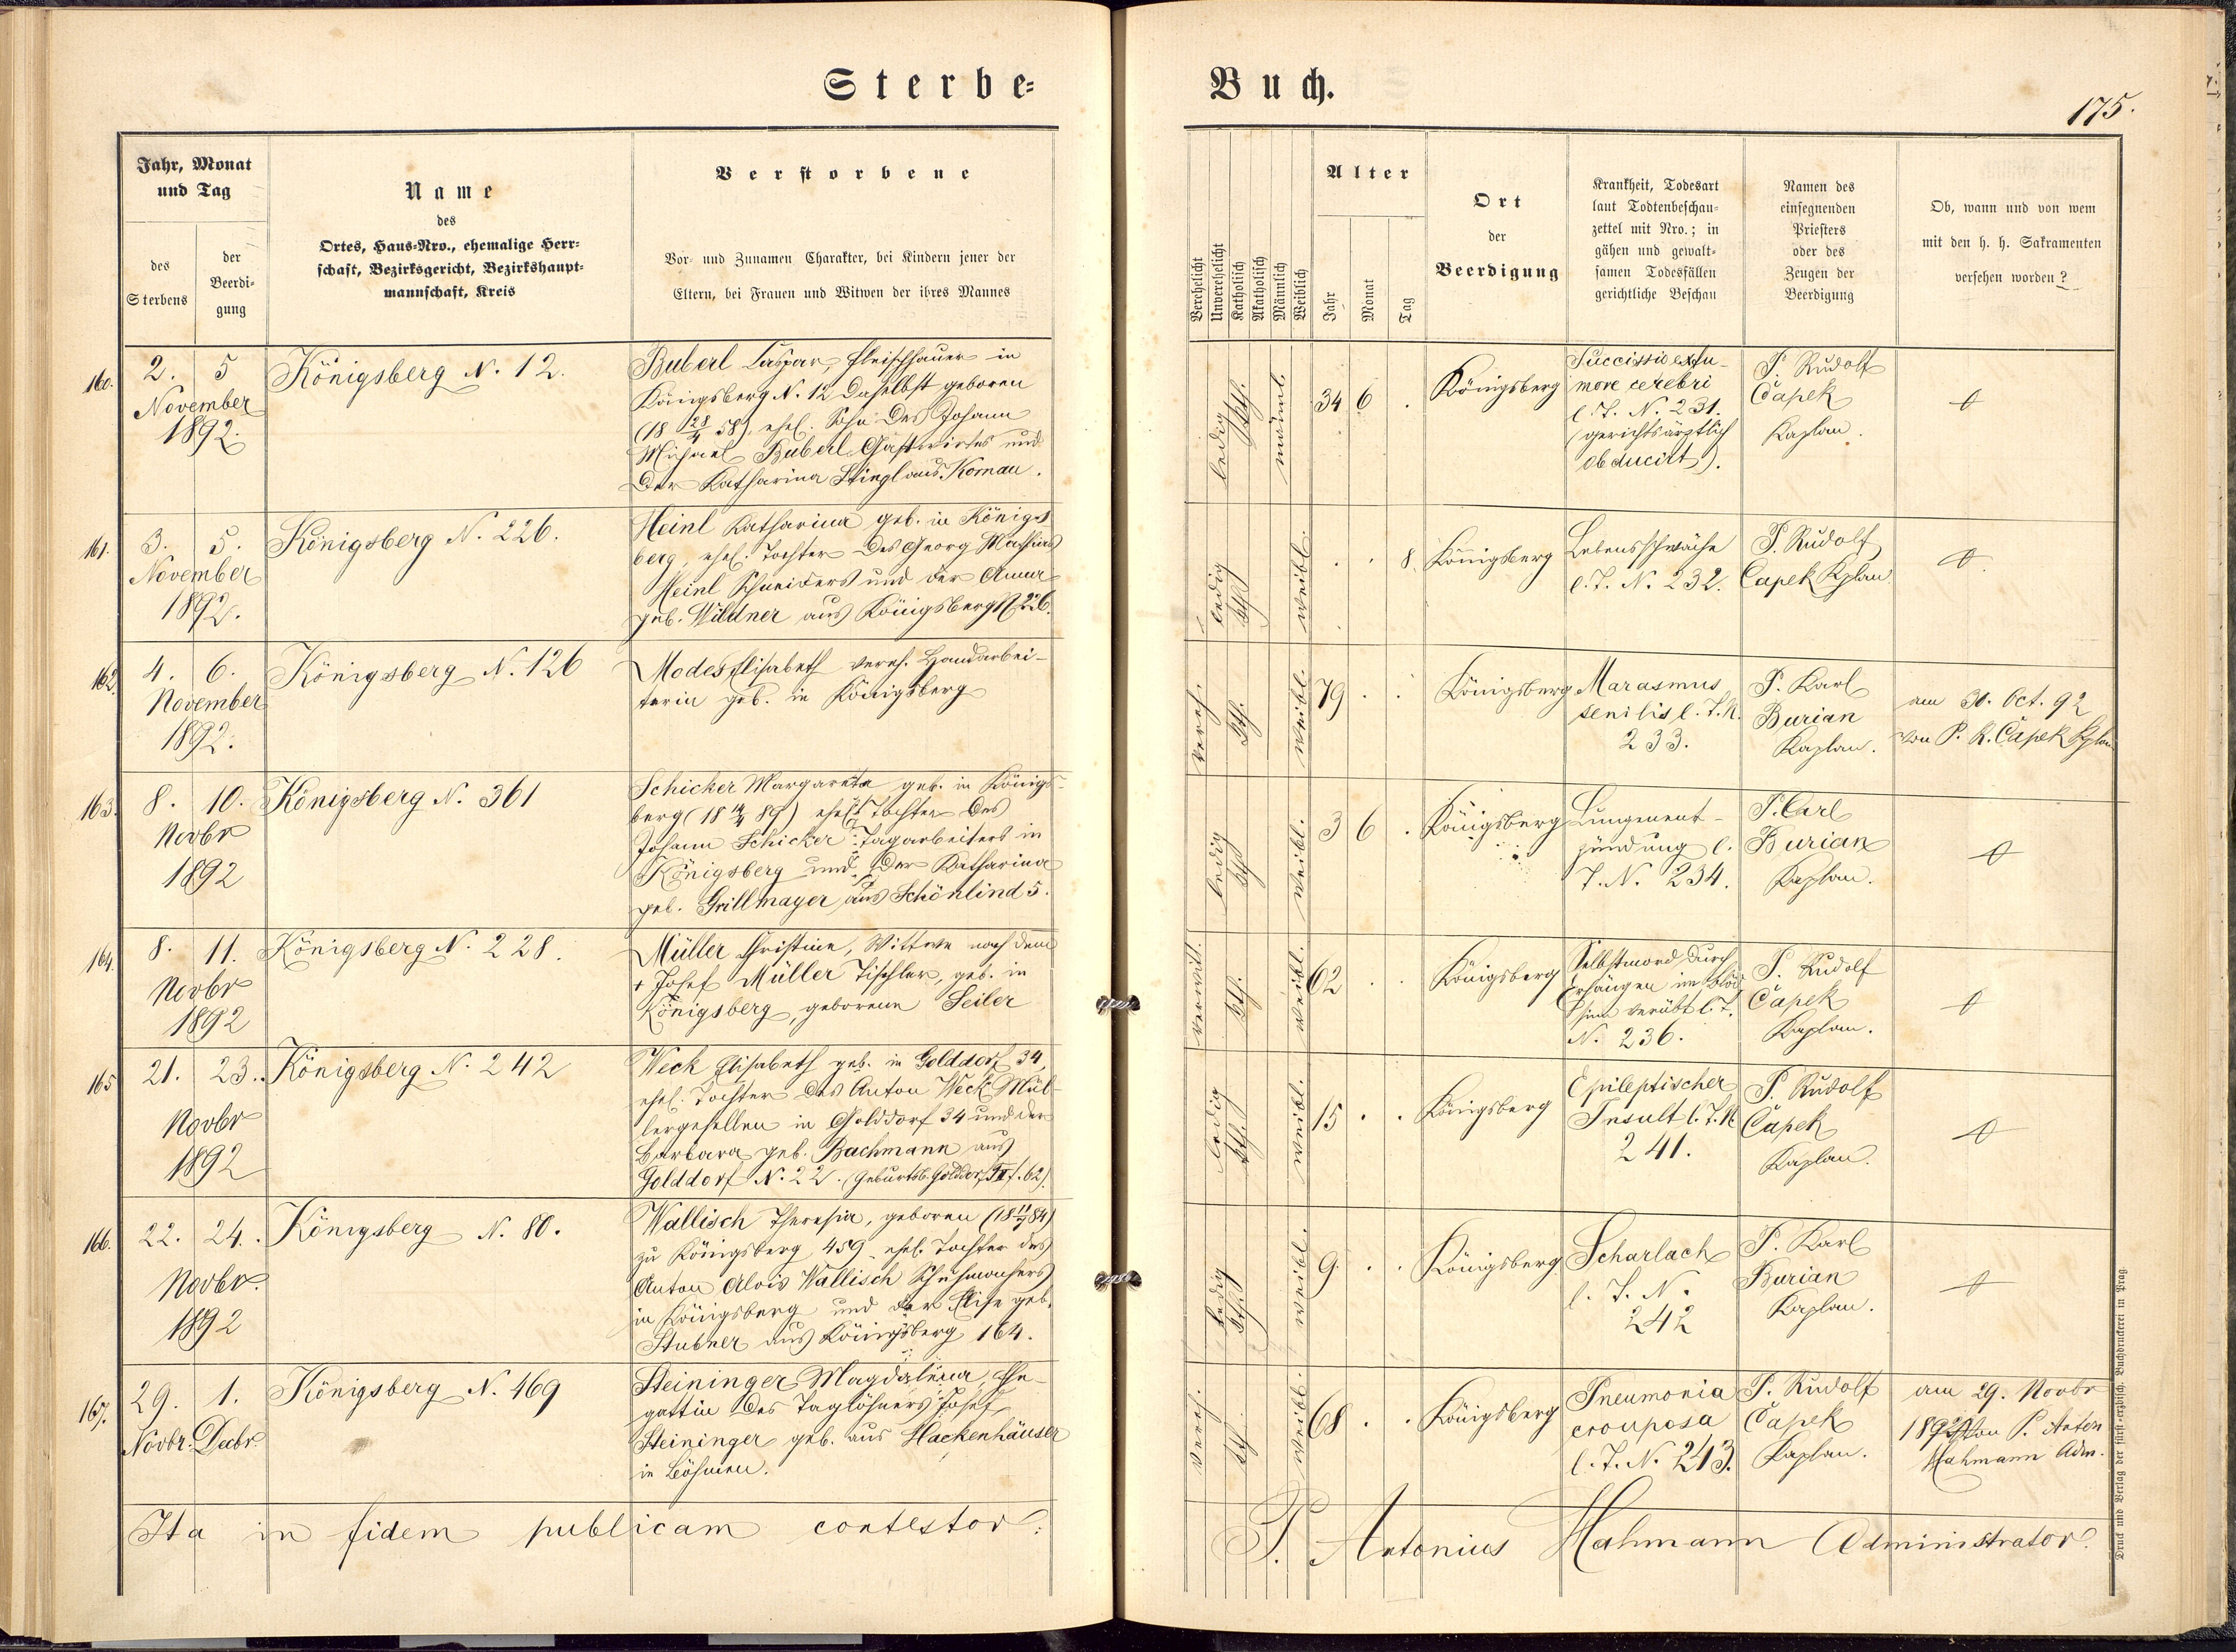 Sterbe-
Buch.
175.
Jahr, Monat
und Tag
des
Sterbens
der
Beerdi-
gung
Name
des
Ortes, Haus-Nro., ehemalige Herr-
schaft, Bezirksgericht, Bezirkshaupt-
mannschaft, Kreis
Verstorbene
Vor- und Zunamen Charakter, bei Kindern jener der
Eltern, bei Frauen und Witwen der ihres Mannes
Verehelicht
Unverehelicht
Katholisch
Akatholisch
Männlich
Weiblich
Alter
Jahr
Monat
Tag
Ort
der
Beerdigung
Krankheit, Todesart
laut Todtenbeschau-
zettel mit Nro.; in
gähen und gewalt-
samen Todesfällen
gerichtliche Beschau
Namen des
einsegnenden
Priesters
oder des
Zeugen der
Beerdigung
Ob, wann und von wem
mit den h. h. Sakramenten
versehen worden?
160.
2. 5
November
1892.
Königsberg N. 12.
Buberl Caspar, Fleischhauer in
Königsberg N. 12 daselbst geboren
(18 28/4 58), ehel. Sohn des Johann
Michael Buberl Gastwirtes und
der Katharina Stingl aus Kornau.
ledig
kth.
männl.
34 6 .
Königsberg
Succissio ex tu-
more cerebri
l. T. N. 231.
(gerichtsärztlich
obducirt).
P. Rudolf
Čapek
Kaplan.
161.
3. 5.
November
1892.
Königsberg N. 226.
Heinl Katharina geb. in Königs
berg, ehel. Tochter des Georg Mathias
Heinl Schneiders und der Anna
geb. Wildner aus Königsberg N 226.
ledig
kth
weibl.
. . 8.
Königsberg
Lebensschwäche
l. T. N. 232.
P. Rudolf
Čapek Kplan
162.
4. 6.
November
1892.
Königsberg N. 126
Modes Elisabeth vereh. Handarbei-
terin geb. in Königsberg
vereh.
kth.
weibl.
79 . .
Königsberg
Marasmus
senilis l. T. N.
233.
P. Karl
Burian
Kaplan.
am 30. Oct. 92
von P. R. Čapek Kplan
163.
8. 10.
Novbr
1892
Königsberg N. 361
Schicker Margareta geb. in Königs-
berg (18 14/4 89) ehel. Tochter des
Johann Schicker Tagarbeiters in
Königsberg und der Katharina
geb. Grillmayer aus Schönlind 5.
ledig
kth
weibl.
3 6 .
Königsberg
Lungenent-
zündung l.
T. N. 234.
P. Carl
Burian
Kaplan.
164.
8. 11.
Novbr
1892
Königsberg N. 228.
Müller Christine, Wittwe nach dem
+ Josef Müller Tischler, geb. in
Königsberg, geborene Seiler
verwit.
kth.
weibl.
62 . .
Königsberg
Selbstmord durch
Erhängen im Blöd-
sinn verübt l. T.
N. 236.
P. Rudolf
Čapek
Kaplan.
165
21. 23.
Novbr
1892
Königsberg N. 242
Weck Elisabeth geb. in Golddorf 34,
ehel. Tochter des Anton Weck Mül-
lergesellen in Golddorf 34 und der
Barbara geb. Bachmann aus
Golddorf N. 22. (Geburtsb. Golddorf II f. 62).
ledig
kth.
weibl.
15 . .
Königsberg
Epileptischer
Insult l. T. N.
241.
P. Rudolf
Čapek
Kaplan.
166.
22. 24.
Novbr.
1892
Königsberg N. 80.
Wallisch Theresia, geboren (18 11/7 84)
zu Königsberg 459 ehel. Tochter des
Anton Alois Wallisch Schuhmachers
in Königsberg und der Elise geb.
Stubner aus Königsberg 164.
ledig
kth.
weibl.
9. . .
Königsberg
Scharlach
l. T. N.
242
P. Karl
Burian
Kaplan.
167.
29. 1.
Novbr. Decbr.
Königsberg N. 469
Steininger Magdalena, Ehe-
gattin des Taglöhners Josef
Steininger geb. aus Hackenhäuser
in Böhmen.
vereh.
kth.
weibl.
68 . .
Königsberg
Pneumonia
crouposa
l. T. N. 243.
P. Rudolf
Čapek
Kaplan.
am 29. Novbr
1892 von P. Anton
Hahmann Adm.
Ita in fidem publicam contestor:
P. Antonius Hahmann Administrator.
Druck und Verlag der fürst-erzbisch. Buchdruckerei in Prag.